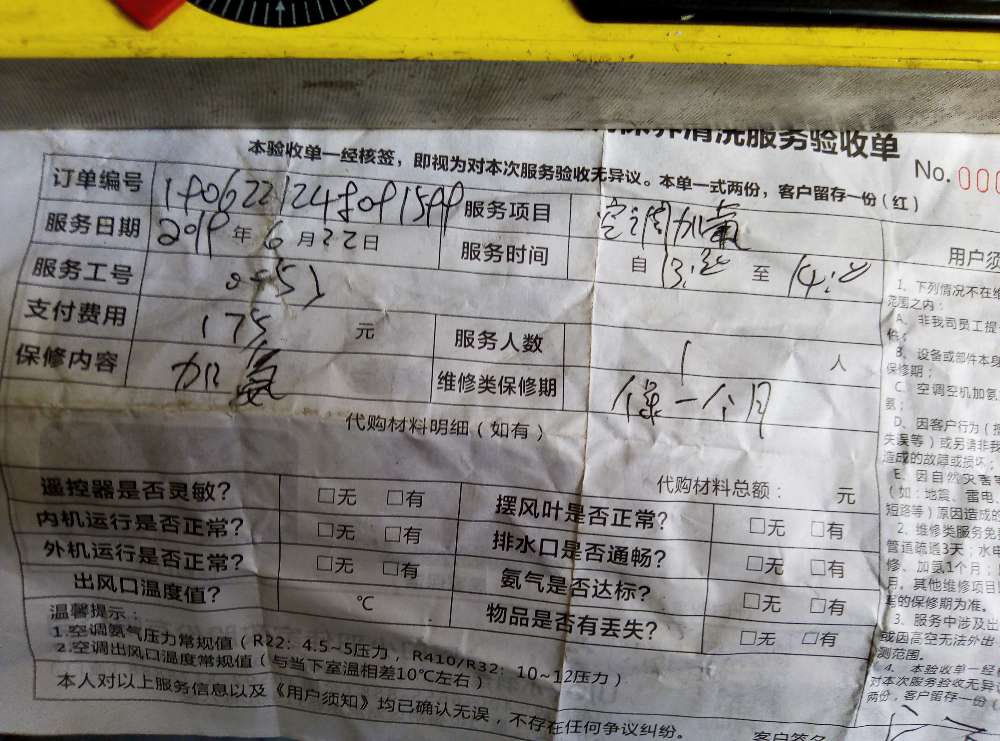 清洗服务验收单
No. 000
本验收单一经核签，即视为对本次服务验收无异议。本单一式两份，客户留存一份（红）
订单编号 服务项目 空调加氟
服务日期 2019 年 6 月 22 日 服务时间 自 13:30 至
服务工号
支付费用 175 元 服务人数 1 人
保修内容 加氨 维修类保修期 保一个月
代购材料明细（如有）
代购材料总额： 元
遥控器是否灵敏? □无 □有 摆风叶是否正常? □无 □有
内机运行是否正常? □无 □有 排水口是否通畅? □无 □有
外机运行是否正常? □无 □有 氨气是否达标? □无 □有
出风口温度值? ℃ 物品是否有丢失? □无 □有
温馨提示：
1.空调氨气压力常规值（R22：4.5~5压力，R410/R32：10~12压力）
2.空调出风口温度常规值（与当下室温相差10℃左右）
本人对以上服务信息以及《用户须知》均已确认无误，不存在任何争议纠纷。
客户签名
用户须
1、下列情况不在维
范围之内：
A、非我司员工提
件；
B、设备或部件本身
保修期；
C、空调空机加氨
氨；
D、因客户行为（操
失误等）或另请非我
造成的故障或损坏；
E、因自然灾害等
（如：地震、雷电、
短路等）原因造成的
2、维修类服务免
管道疏通3天；水电
修、加氨1个月；
月。其他维修项目
的保修期为准。
3、服务中涉及出
或因高空无法外出
测范围。
4、本验收单一经
对本次服务验收无异
两份，客户留存一份（